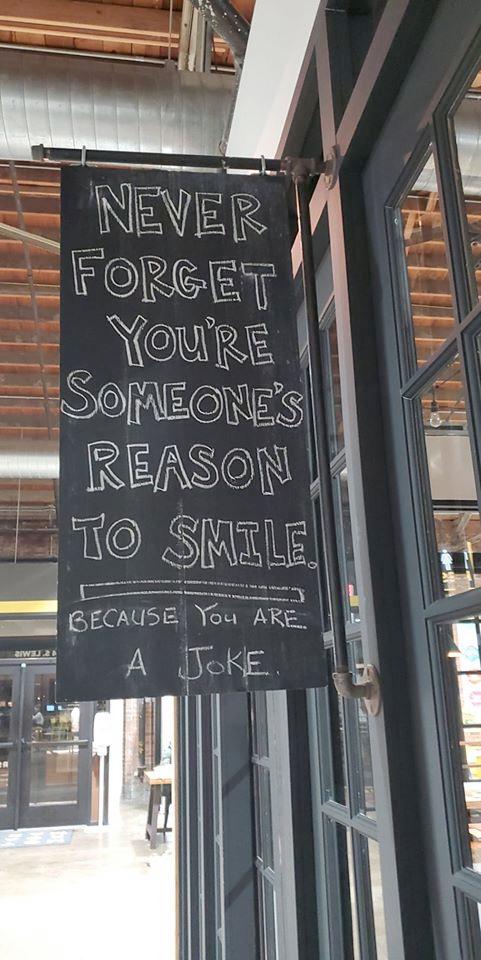 NEVER
FORGET
YOU'RE
SOMEONE'S
REASON
TO SMILE.
BECAUSE YOU ARE
A JOKE.
S. LEWIS